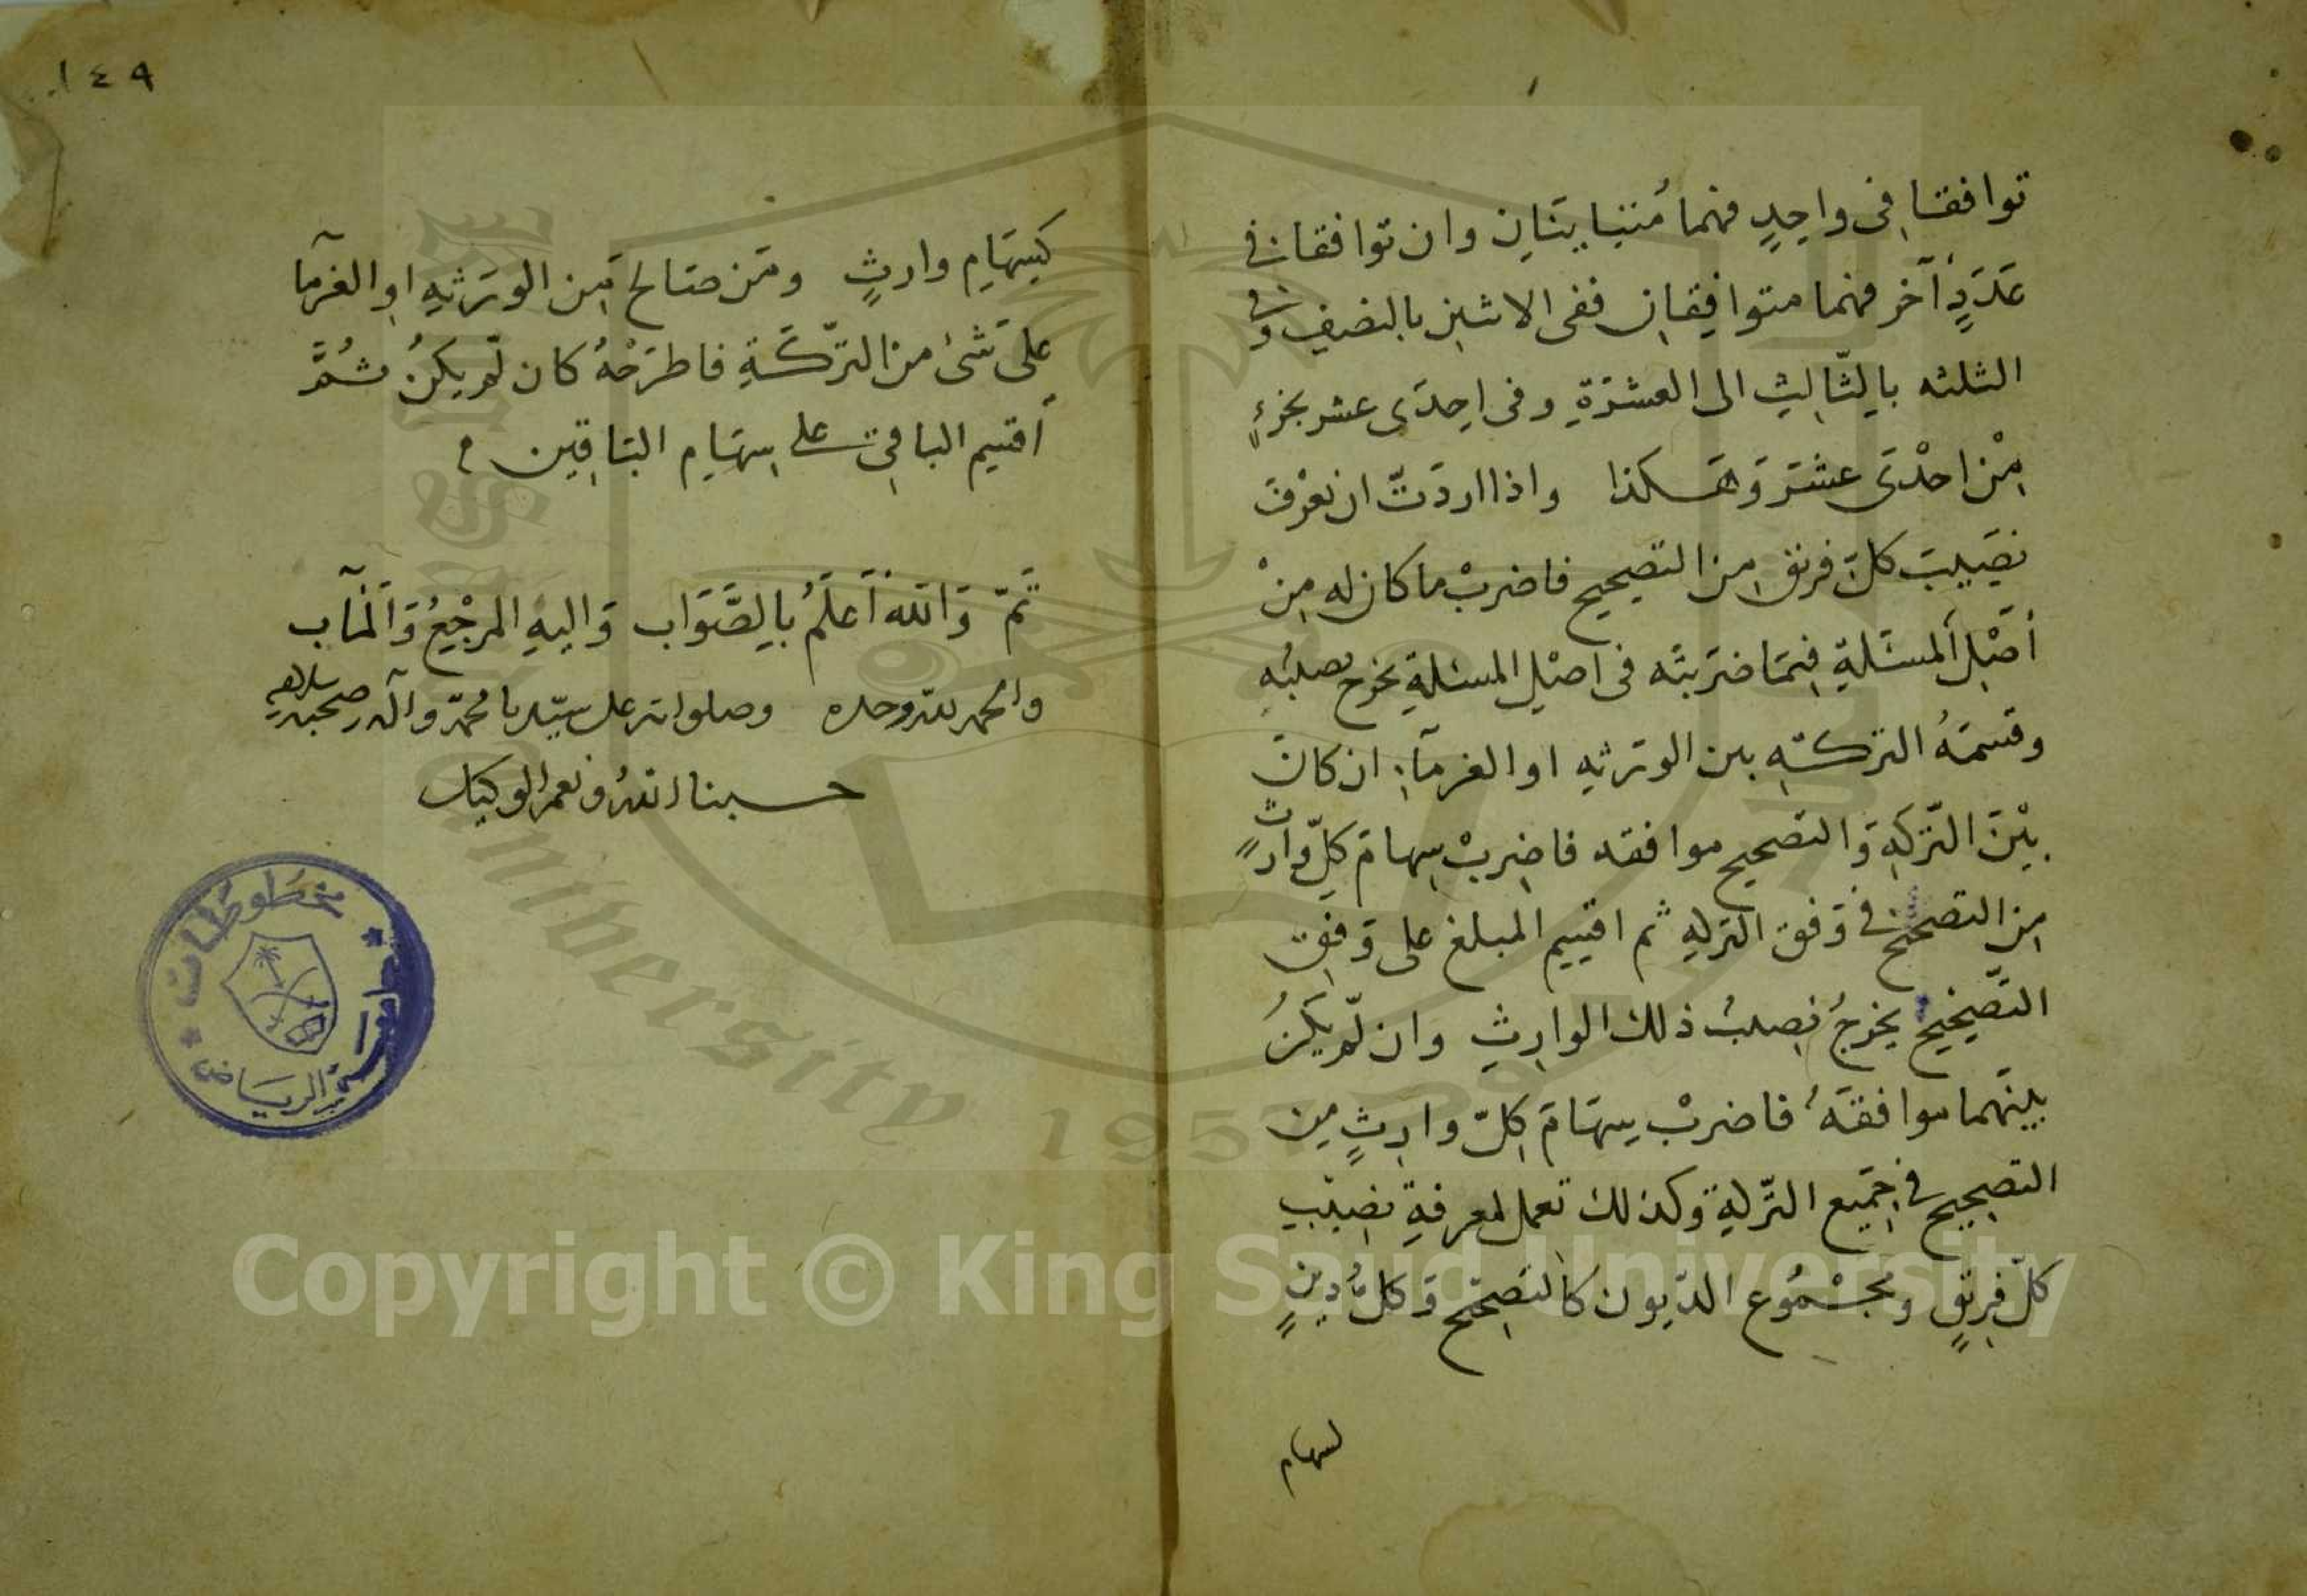 توافقا فى واحدٍ فهما مُتباينَانِ وان توافقا فى
عَدَدٍ آخر فهما متوافِقِانِ ففى الاثنين بالنصفِ وفى
الثلثه بالِثّالِثِ الى العشرَةِ وفى احِدَى عشر بجزءٍ
مِنْ احْدَى عشَرَ وَهَكذا واذا اردَتّ ان تعْرفَ
نصَيِبَ كلّ فريق من التصِحيح فاضربْ ما كان له مِنْ
أصْلِ المسئَلةِ فيمَا ضَربتَه فى اصْلِ المسئلةِ يخرج نصيبُه
وقسمَةُ التركتهِ بين الورَثهِ او الغرمآءِ ان كانَ
بيْنَ التّركهِ وَالتصحيح موافقه فاضِربْ سِهامَ كلِّ وارثٍ
مِن التصحيح فى وَفق التركهِ ثم اقسِم المبلغ على وَفقِ
التّصِحيح يخرجُ نصِيبُ ذلك الوارِثِ وان لّم يكنُ
بينَهما موافقَهُ فاضربْ سِهَامَ كلّ وارِثٍ مِن
التصِحيح فى جَمِيع التَّركةِ وكذلك تعمل لمعرفةِ نصِيبِ
كلّ فرِيقٍ ومجْمُوع الدّيون كالتصِحيح وَكلُّ دينٍ
لسهام
١٤٩
كسِهَامِ وارثٍ ومَن صَالح مِن الورَثهِ او الغرمآ
على شَئ من التّركَةِ فاطرَحْهُ كان لّم يكنُ ثُمَّ
أقسِم الباقِىَ على سِهَامِ البَاقِين م
تَمّ وَالله أَعلَمُ بِالصَّوَاب وَاليهِ المرْجِعُ وَالمَآب
والحمد لله وحده وصلواته على سيّدنا محمّد وآله وصحبه وسلامه
حسبنا الله ونعم الوكيل
مخطوطات
جامعة الرياض
University 1957
Copyright © King Saud University